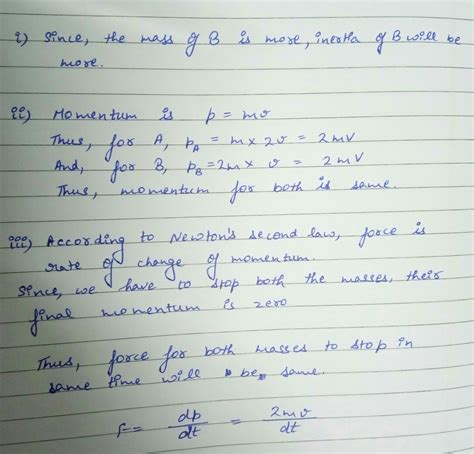 i) Since, the mass of B is more, inertia of B will be
more.
ii) Momentum is p = mv
Thus, for A, p_A = m × 2v = 2mV
And, for B, p_B = 2m × v = 2mV
Thus, momentum for both is same.
iii) According to Newton's second law, force is
rate of change of momentum.
Since, we have to stop both the masses, their
final momentum is zero
Thus, force for both masses to stop in
same time will be same.
F = dp/dt = 2mv/dt